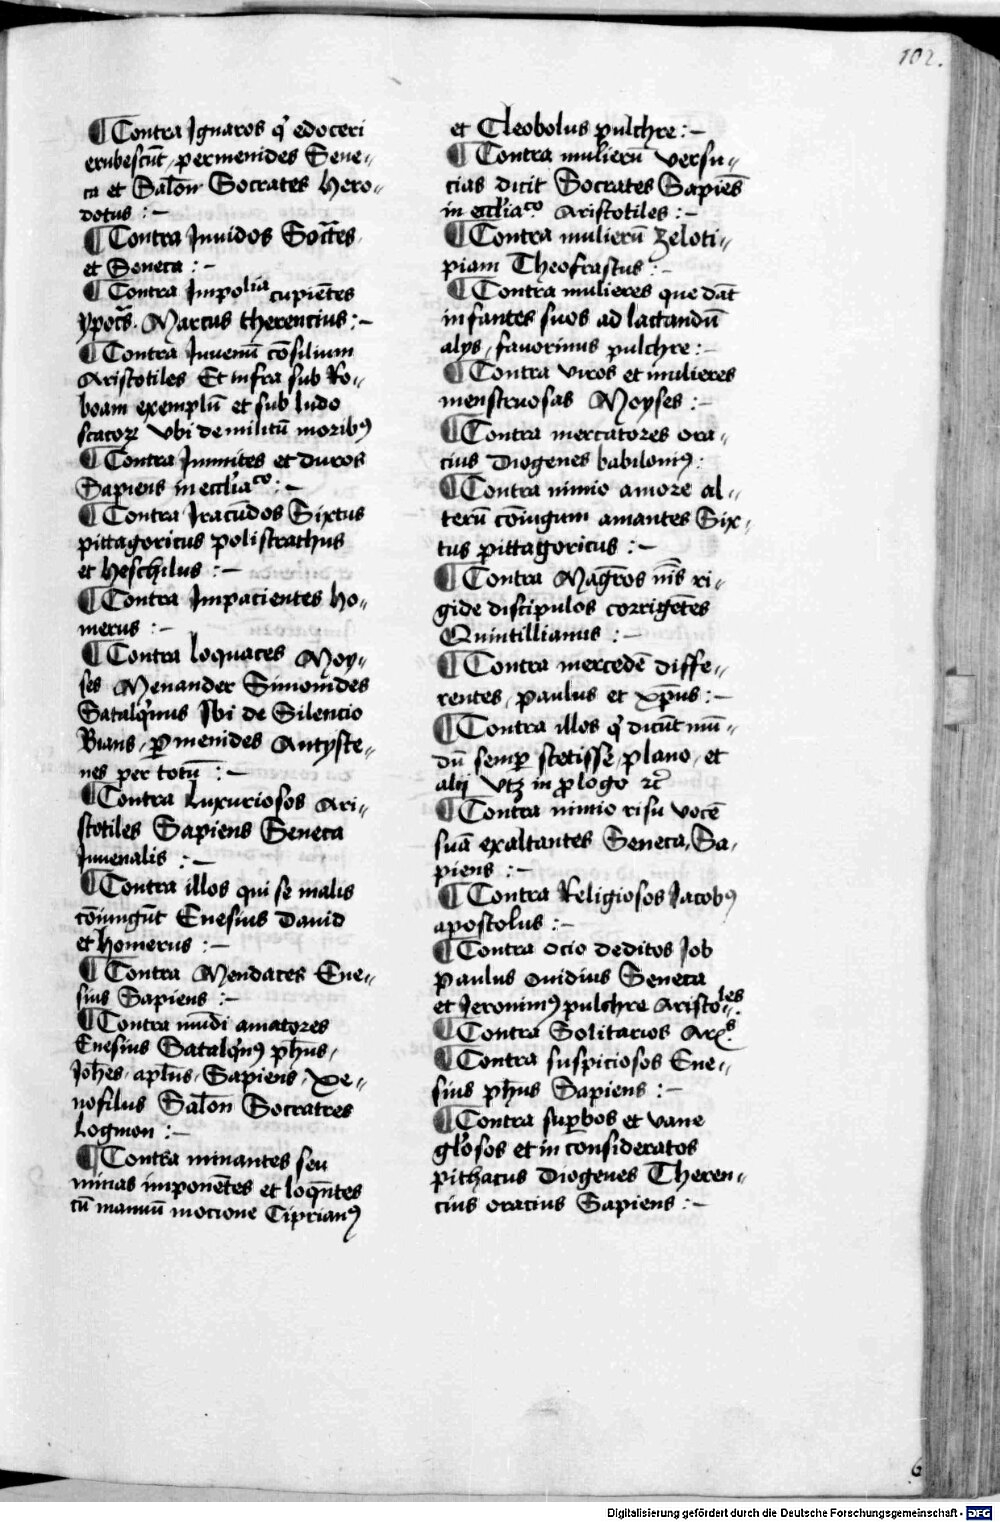 102.
¶ Contra Ignaros qͥ edoceri
erubescūt, permenides Sene-
ca et Salōn Socrates hero-
dotus :-
¶ Contra Inuidos Soc̄tes
et Seneca :-
¶ Contra Impolia cupiētes
ypoc̄s. Marcus therencius :-
¶ Contra Iuuenū cōsilium
Aristotiles Et infra sub Ro-
boam exemplū et sub ludo
scacorꝝ vbi de militū moribꝰ
¶ Contra Immites et duros
Sapiens in eccl̄iaco :-
¶ Contra Iracūdos Sixtus
pittagoricus polistrathus
et heschilus :-
¶ Contra Impacientes ho-
merus :-
¶ Contra loquaces Moy-
ses Menander Simonides
Satalqͥnus Ibi de Silencio
Bians, ꝑmenides Antyste-
nes per totū :-
¶ Contra Luxuriosos Ari-
stotiles Sapiens Seneca
Iuuenalis :-
¶ Contra illos qui se malis
cōiungūt Enesius Dauid
et homerus :-
¶ Contra Mendaces Ene-
sius Sapiens :-
¶ Contra mūdi amatores
Enesius Satalqͥnꝰ ph̄us,
Ioh̄es, apl̄us, Sapiens, Xe-
nofilus Salōn Socratres
Logmon :-
¶ Contra minantes seu
minas imponētes et loqn̄tes
cū manuū mocione Ciprianꝰ
et Cleobolus pulchre :-
¶ Contra mulierū versu-
cias dicit Socrates Sapiēs
in eccl̄iaco Aristotiles :-
¶ Contra mulierū zeloti-
piam Theofrastus :-
¶ Contra mulieres que dāt
infantes suos ad lactandū
alys, fauorinus pulchre :-
¶ Contra viros et mulieres
menstruosas Moyses :-
¶ Contra mercatores ora-
cius Diogenes babilonꝰ :
¶ Contra nimio amore al-
terū cōiugum amantes Six-
tus pittagoricus :-
¶ Contra Maḡros nīs ri-
gide discipulos corrigētes
Quintillianus :-
¶ Contra mercedē diffe-
rentes, paulus et xp̄us :-
¶ Contra illos qͥ dicūt mū-
dū semꝑ stetisse, plano, et
alij vtꝫ in ꝓlogo ⁊c̄
¶ Contra nimio risu vocē
suā exaltantes Seneca, Sa-
piens :-
¶ Contra Religiosos Iacobꝰ
apostolus :-
¶ Contra ocio deditos Job
Paulus ouidius Seneca
et Ieronimꝰ pulchre Aristoles.
¶ Contra Solitarios Ar̄s.
¶ Contra suspiciosos Ene-
sius ph̄us Sapiens :-
¶ Contra suꝑbos et vane
gl̄osos et in consideratos
pithacus Diogenes Theren-
cius oracius Sapiens :-
6
Digitalisierung gefördert durch die Deutsche Forschungsgemeinschaft - DFG